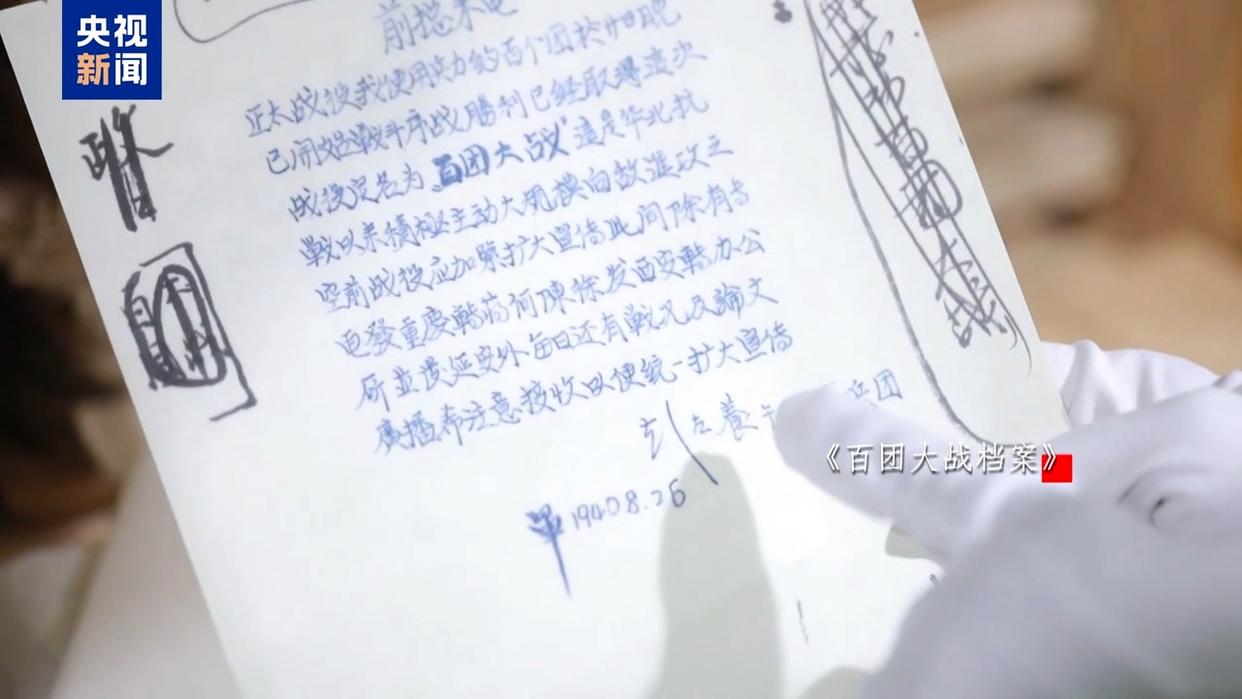 央视
新闻
前总来电
正太战役我使用兵力约百个团於廿日晚
已开始战斗序战勝利已经取得這次
战役定名为“百团大战”這是华北抗
戰以来積極主动大规模向敌進攻之
空前战役应加緊扩大宣传此间除有专
电發重慶轉蒋何陳徐发西安轉办公
所並發延安外每日还有戰况及論文
廣播希注意接收以便统一扩大宣传
彭左養午 兵团
1940 8.26
《百团大战档案》